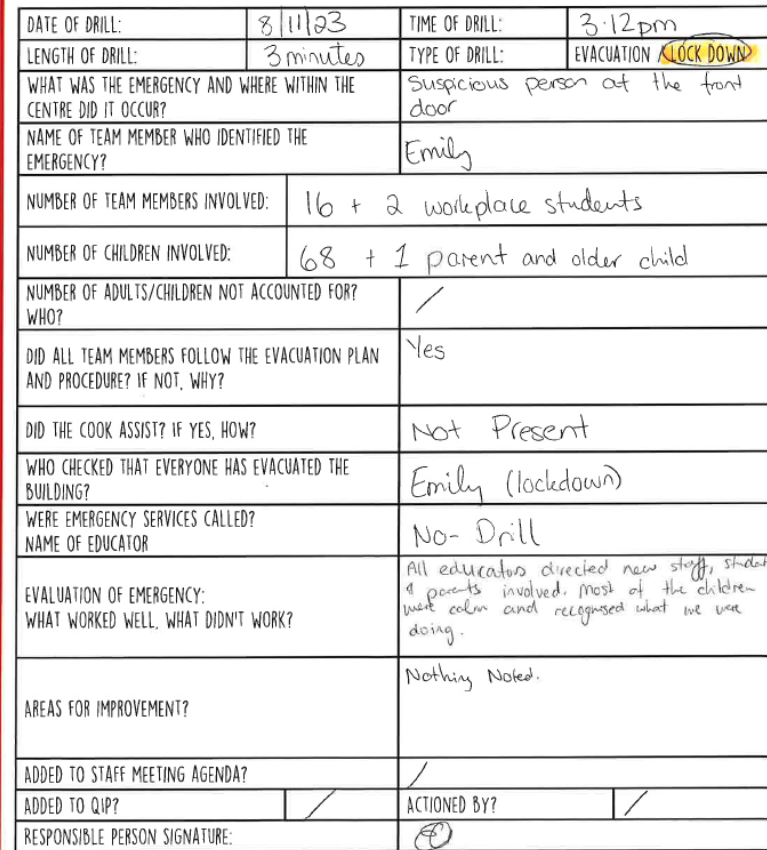 DATE OF DRILL: 8/11/23 TIME OF DRILL: 3:12pm
LENGTH OF DRILL: 3 minutes TYPE OF DRILL: EVACUATION / LOCK DOWN
WHAT WAS THE EMERGENCY AND WHERE WITHIN THE
CENTRE DID IT OCCUR?
Suspicious person at the front
door
NAME OF TEAM MEMBER WHO IDENTIFIED THE
EMERGENCY?
Emily
NUMBER OF TEAM MEMBERS INVOLVED: 16 + 2 workplace students
NUMBER OF CHILDREN INVOLVED: 68 + 1 parent and older child
NUMBER OF ADULTS/CHILDREN NOT ACCOUNTED FOR?
WHO?
/
DID ALL TEAM MEMBERS FOLLOW THE EVACUATION PLAN
AND PROCEDURE? IF NOT, WHY?
Yes
DID THE COOK ASSIST? IF YES, HOW? Not Present
WHO CHECKED THAT EVERYONE HAS EVACUATED THE
BUILDING?
Emily (lockdown)
WERE EMERGENCY SERVICES CALLED?
NAME OF EDUCATOR
No- Drill
EVALUATION OF EMERGENCY:
WHAT WORKED WELL, WHAT DIDN'T WORK?
All educators directed new staff, student
& parents involved. Most of the children
were calm and recognised what we were
doing.
AREAS FOR IMPROVEMENT?
Nothing Noted.
ADDED TO STAFF MEETING AGENDA? /
ADDED TO QIP? / ACTIONED BY? /
RESPONSIBLE PERSON SIGNATURE: